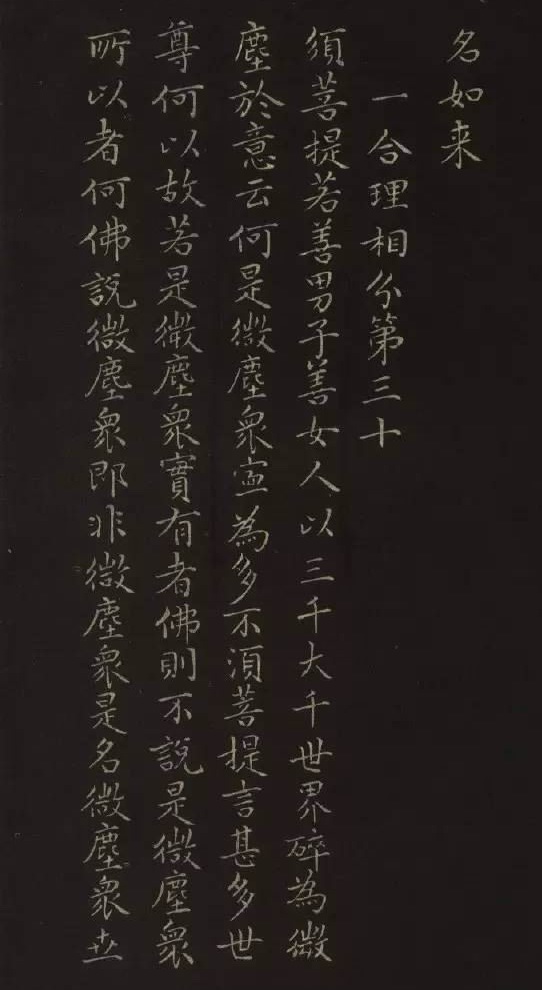 名如来
一合理相分第三十
須菩提若善男子善女人以三千大千世界碎為微
塵於意云何是微塵衆寍為多不須菩提言甚多世
尊何以故若是微塵衆實有者佛則不說是微塵衆
所以者何佛說微塵衆即非微塵衆是名微塵衆世